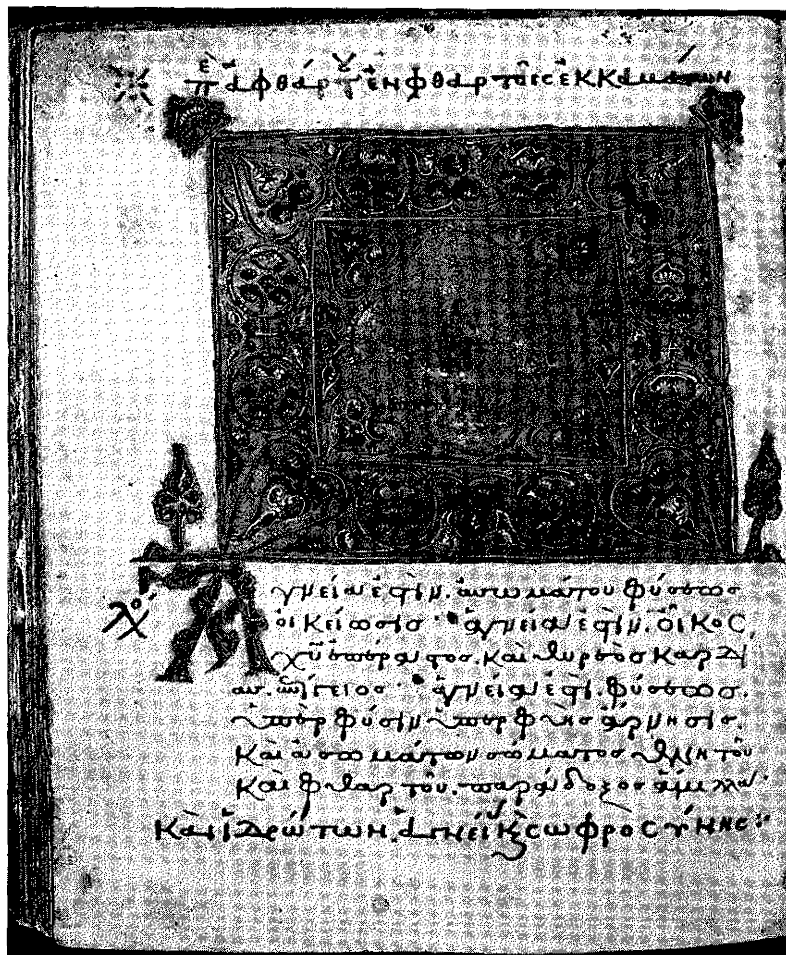 πὲ ἀφθάρτου ἐν φθαρτοῖς ἐκ καμάτων
Ἁγνεία ἐστὶν. ἀσωμάτου φύσεως
οἰκείωσις · ἁγνεία ἐστὶν. οἶκος
χῦ ἐπέραστος. καὶ καρδί
ας. ἐπίγειος · ἁγνεία ἐστὶ. φύσεως.
ὑπὲρ φύσιν ὑπερφυὴς ἄρνησις.
Καὶ ἀσωμάτων σώματος θνητοῦ
καὶ φθαρτοῦ. παράδοξος ἅμιλλα·
Καὶ ἱδρώτων. ἁγνεί κ̀ σωφροσύνης: